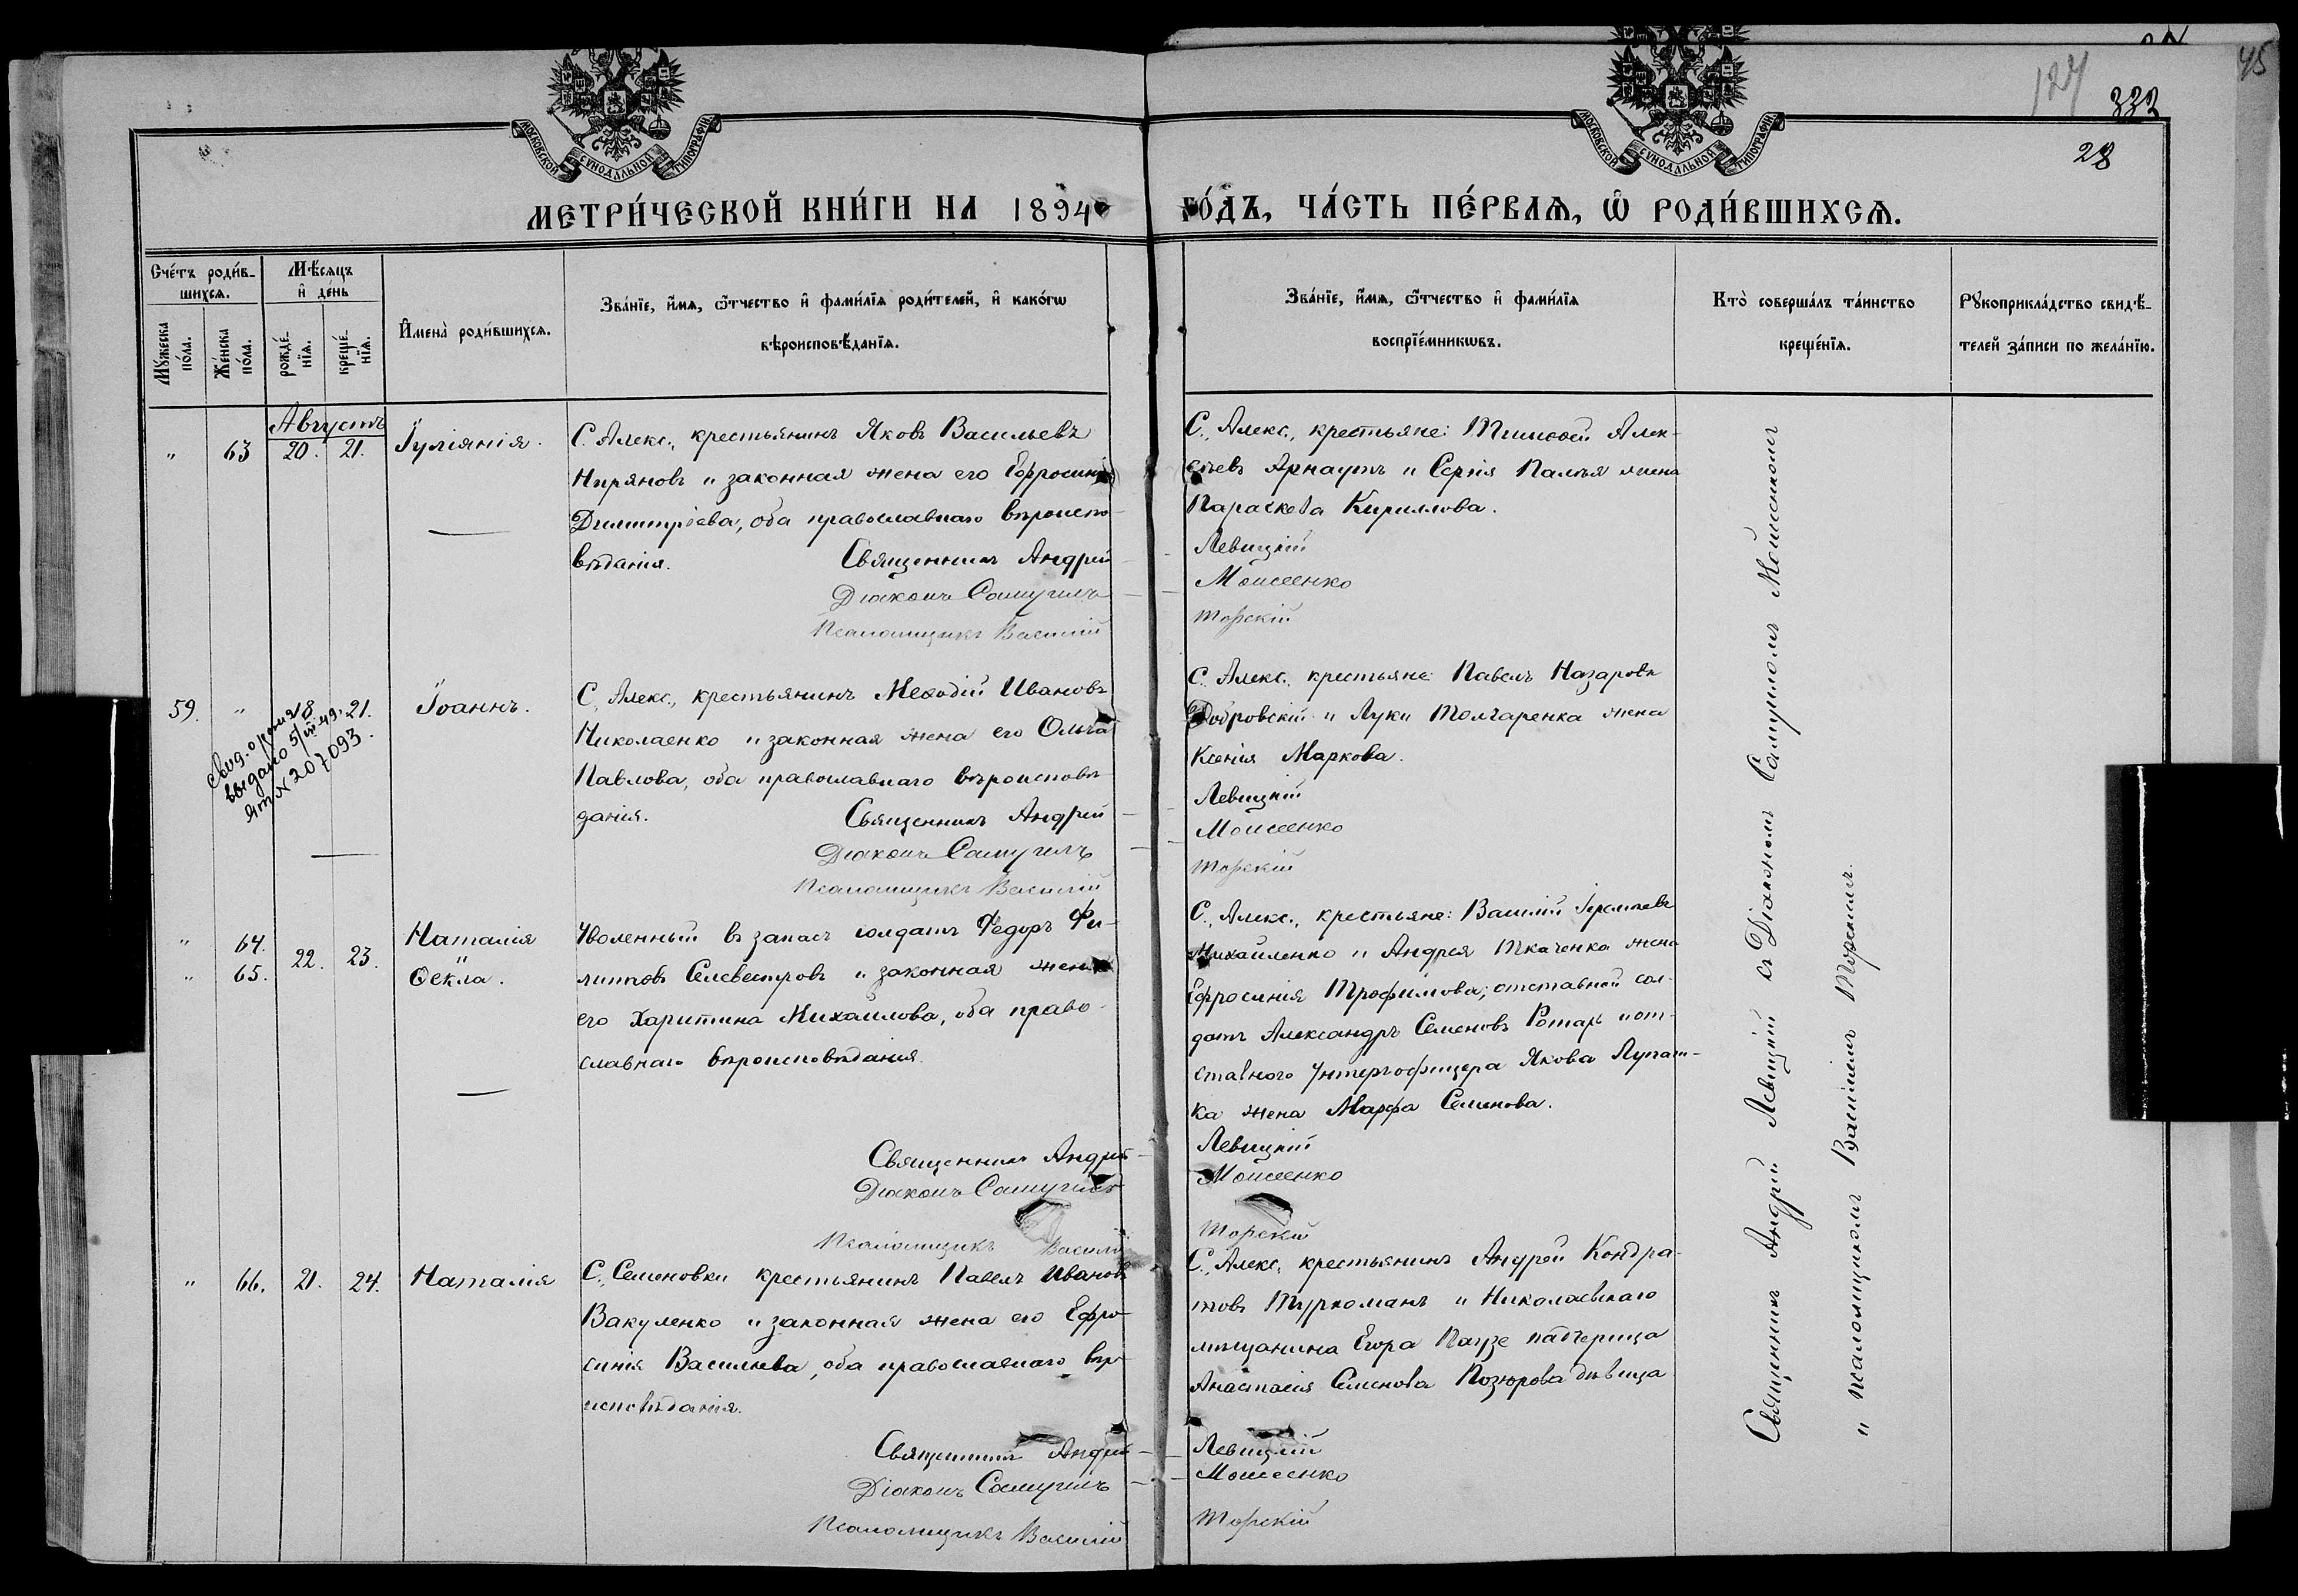 45
127
332
28
МОСКОВСКОЙ СѴНОДАЛЬНОЙ ТИПОГРАФІИ
МОСКОВСКОЙ СѴНОДАЛЬНОЙ ТИПОГРАФІИ
МЕТРИ́ЧЕСКОЙ КНИ́ГИ НА 1894
ГО́ДЪ, ЧА́СТЬ ПЕ́РВАѦ, Ѡ҆ РОДИ́ВШИХСѦ.
Сче́тъ роди́в-
шихсѧ.
Мѣ́сѧцъ
и҆ де́нь
Мꙋ́жеска
по́ла.
Же́нска
по́ла.
рожде́-
нїѧ.
креще́-
нїѧ.
И҆мена̀ роди́вшихсѧ.
Зва́нїе, и҆́мѧ, ѻ҆́тчество и҆ фами́лїѧ роди́телей, и҆ како́гѡ
вѣроисповѣ́данїѧ.
Зва́нїе, и҆́мѧ, ѻ҆́тчество и҆ фами́лїѧ
воспрїе́мникѡвъ.
Кто̀ соверша́лъ та́инство
креще́нїѧ.
Рꙋкоприкла́дство свидѣ́-
телей за́писи по жела́нїю.
Августъ
" 63 20. 21. Іуліанія.
С. Алекс., крестьянинъ Яковъ Васильевъ
Киряновъ и законная жена его Ефросинія
Димитріева, оба православнаго вѣроиспо-
вѣданія. Священникъ Андрей
Діаконъ Самуилъ
Псаломщикъ Василій
С. Алекс., крестьяне: Тимофей Алек-
сѣевъ Арнаутъ и Сергія жена
Параскева Кириллова.
Левицкій
Моисеенко
Торскій
59. " 18 21. Іоаннъ.
Свид. о рожд.
выдано 5/III 49.
ЯП № 207093.
С. Алекс., крестьянинъ Меѳодій Ивановъ
Николаенко и законная жена его Ольга
Павлова, оба православнаго вѣроисповѣ
данія. Священникъ Андрей
Діаконъ Самуилъ
Псаломщикъ Василій
С. Алекс. крестьяне: Павелъ Назаровъ
Добровскій и Луки Толчаренка жена
Ксенія Маркова.
Левицкій
Моисеенко
Торскій
" 64. 22. 23. Наталія
" 65. Ѳекла.
Уволенный въ запасъ солдатъ Федоръ Фи-
липповъ Селевестровъ и законная жена
его Харитина Михайлова, оба право-
славнаго вѣроисповѣданія.
Священникъ Андрей
Діаконъ Самуилъ
Псаломщикъ Василій
С. Алекс., крестьяне: Василій
Михайленко и Андрея Ткаченка жена
Ефросинія Трофимова; отставной сол-
датъ Александръ Семеновъ Ротарь и от-
ставного унтерофицера Якова Лупаш-
ка жена Марфа Семенова.
Левицкій
Моисеенко
Торскій
" 66. 21. 24. Наталія
С. Семеновки крестьянинъ Павелъ Ивановъ
Вакуленко и законная жена его Ефро-
синія Васильева, оба православнаго вѣро-
исповѣданія.
Священникъ Андрей
Діаконъ Самуилъ
Псаломщикъ Василій
С. Алекс. крестьянинъ Андрей Кондра-
товъ Туркоманъ и Николаевскаго
мѣщанина Егора падчерица
Анастасія Семенова Позюрова дѣвица
Левицкій
Моисеенко
Торскій
Священникъ Андрей Левицкій съ Діакономъ Самуиломъ Моисеенкомъ
и псаломщикомъ Василіемъ Торскимъ.